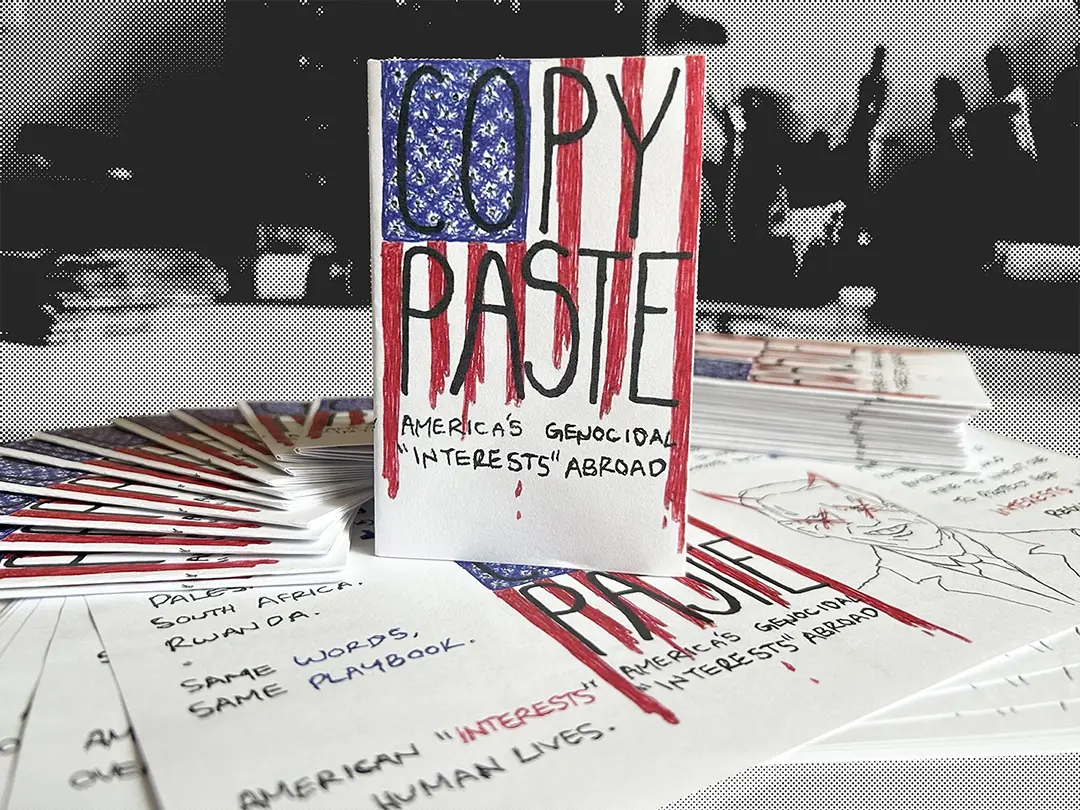 COPY
PASTE
AMERICA'S GENOCIDAL
"INTERESTS" ABROAD
SOUTH AFRICA.
RWANDA.
SAME WORDS,
SAME PLAYBOOK.
AMERICAN "INTERESTS"
HUMAN LIVES.
PASTE
AMERICA'S GENOCIDAL
"INTERESTS" ABROAD
TO PROTECT
INTERESTS